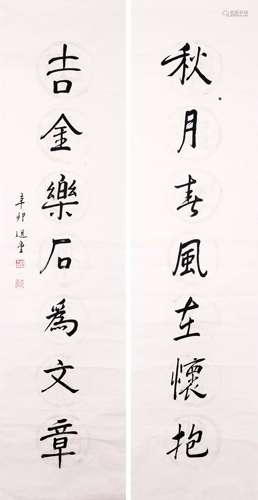 秋月春風在懷抱
吉金樂石為文章
辛卯 選堂